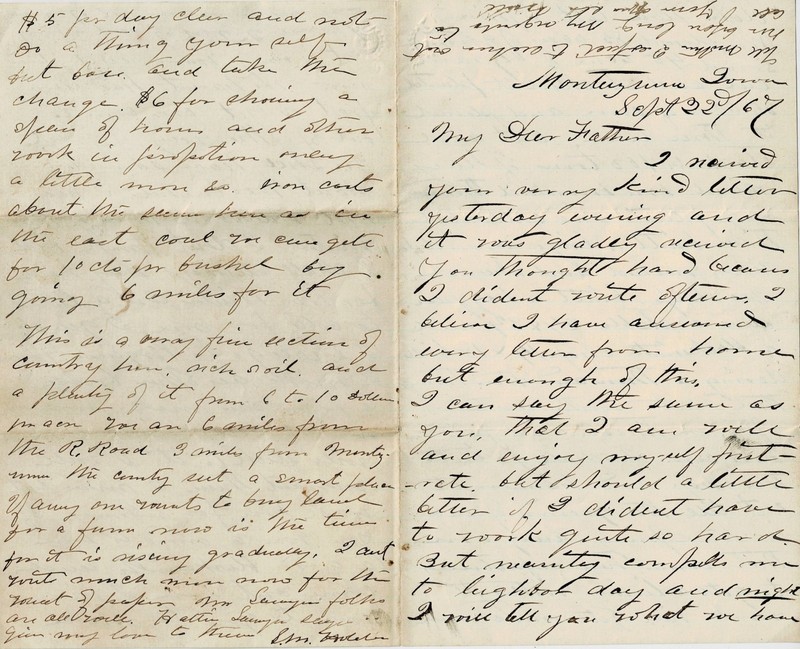 Montezuma Iowa
Sept 22d/67
My Dear Father
I recived
your very kind letter
yesterday evening and
it was gladly recived
You thought hard becaus
I dident write oftener. I
belive I have answered
every letter from home
but enough of this.
I can say the same as
you, that I am well
and enjoy myself first
-rate. but should a little
better if I dident have
to work quite so hard.
But necesity compells me
to  day and night
I will tell you what we have
$5 per day clear and not
do a thing your self
but boss and take the
change. $6 for shoing a
span of horses and other
work in propotion only
a little more so. iron costs
about the same here as in
the east coal we can get
for 10 cts pr bushel by
going 6 miles for it
This is a very fine section of
country here. rich soil. and
a plenty of it from 6 to 10 dollars
pr acre we are 6 miles from
the R. Road 3 miles from Monte-
zuma the county seet a smart place
If any one wants to buy land
for a farm now is the time
for it is rising gradually. I cant
write much more now for the
want of paper Mr Sawyer folks
are all well. Hatty Sawyer says
give my love to them S.M.